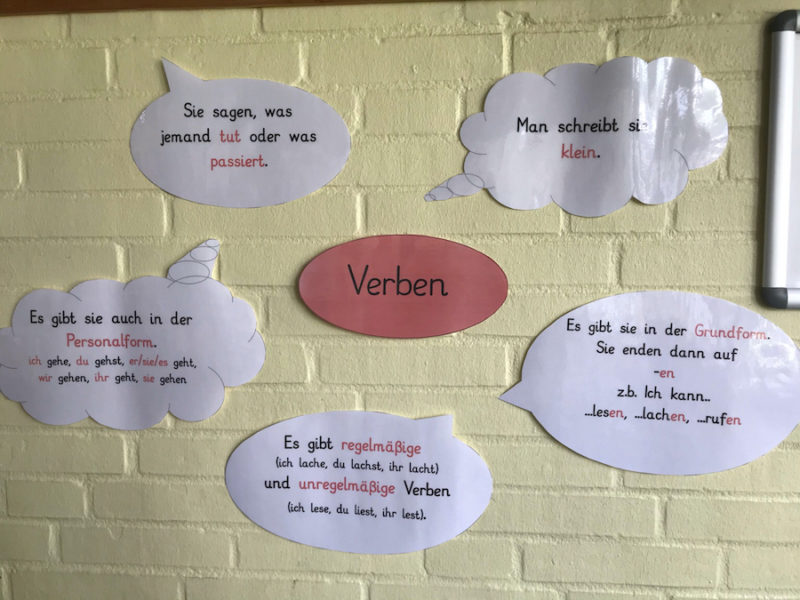 Sie sagen, was
jemand tut oder was
passiert.
Man schreibt sie
klein.
Verben
Es gibt sie auch in der
Personalform.
ich gehe, du gehst, er/sie/es geht,
wir gehen, ihr geht, sie gehen
Es gibt sie in der Grundform.
Sie enden dann auf
-en
z.b. Ich kann..
...lesen, ...lachen, ...rufen
Es gibt regelmäßige
(ich lache, du lachst, ihr lacht)
und unregelmäßige Verben
(ich lese, du liest, ihr lest).